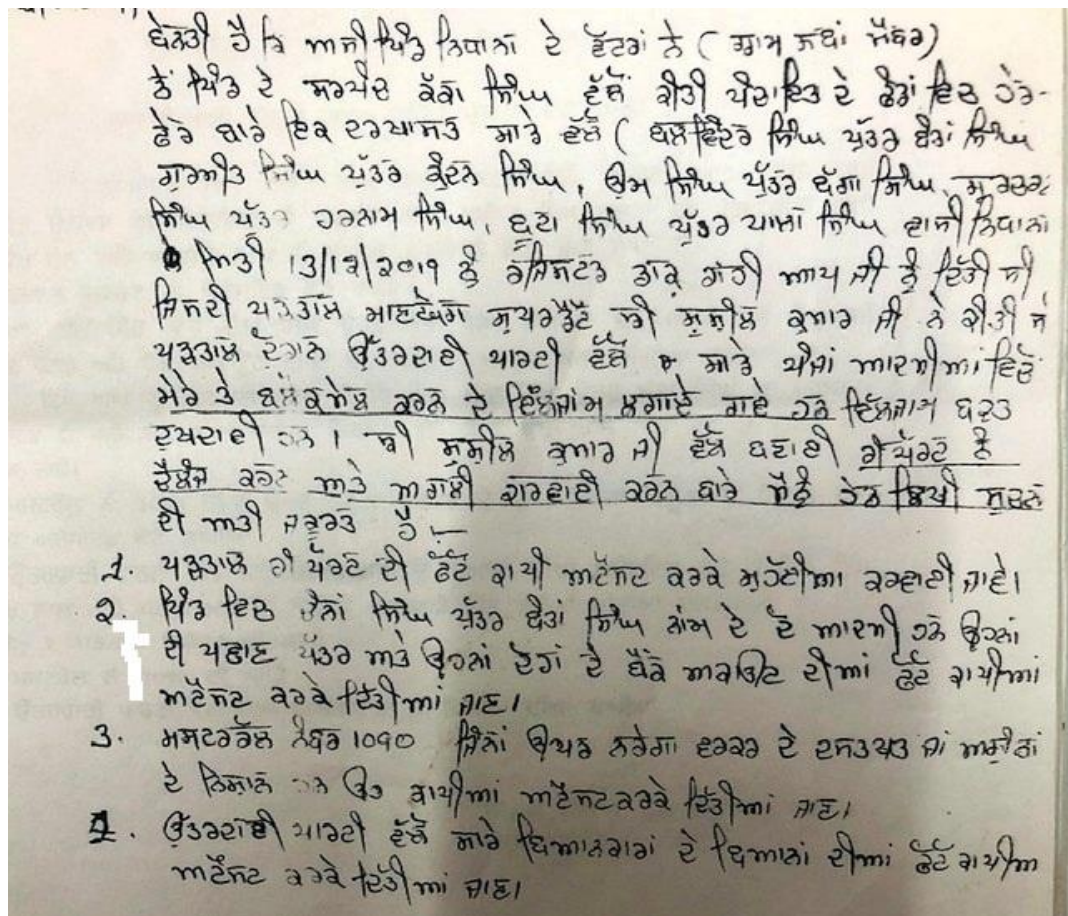 ਬੇਨਤੀ ਹੈ ਕਿ ਅਸੀ ਪਿੰਡ ਨਿਧਾਨਾਂ ਦੇ ਵੋਟਰਾਂ ਨੇ ( ਗ੍ਰਾਮ ਸਭਾ ਮੈਂਬਰ)
ਨੇ ਪਿੰਡ ਦੇ ਸਰਪੰਚ ਕੱਕਾ ਸਿੰਘ ਵੱਲੋਂ ਕੀਤੀ ਪੰਚਾਇਤ ਦੇ ਫੰਡਾਂ ਵਿਚ ਹੇਰ-
ਫੇਰ ਬਾਰੇ ਇਕ ਦਰਖਾਸਤ ਸਾਡੇ ਵੱਲੋਂ ( ਬਲਵਿੰਦਰ ਸਿੰਘ ਪੁੱਤਰ ਬੰਤਾ ਸਿੰਘ
ਗੁਰਮੀਤ ਸਿੰਘ ਪੁੱਤਰ ਕੁੰਦਨ ਸਿੰਘ, ਓਮ ਸਿੰਘ ਪੁੱਤਰ ਬੱਗਾ ਸਿੰਘ,
ਸਿੰਘ ਪੁੱਤਰ ਹਰਨਾਮ ਸਿੰਘ, ਬੂਟਾ ਸਿੰਘ ਪੁੱਤਰ ਖਾਸਾ ਸਿੰਘ ਵਾਸੀ ਨਿਧਾਨਾਂ
ਮਿਤੀ 13/12/2019 ਨੂੰ ਰਜਿਸਟਰ ਡਾਕ ਰਾਹੀ ਆਪ ਜੀ ਨੂੰ ਦਿੱਤੀ ਸੀ
ਜਿਸਦੀ ਪੜਤਾਲ ਮਾਣਯੋਗ ਸੁਪਰਡੈਂਟ ਸ਼੍ਰੀ ਸੁਸ਼ੀਲ ਕੁਮਾਰ ਜੀ ਨੇ ਕੀਤੀ ਜੋ
ਪੜਤਾਲ ਦੌਰਾਨ ਉੱਤਰਦਾਈ ਪਾਰਟੀ ਵੱਲੋਂ ਸਾਡੇ ਪੰਜਾਂ ਆਦਮੀਆਂ ਵਿਚੋਂ
ਮੇਰੇ ਤੇ ਬਲੈਕਮੇਲ ਕਰਨ ਦੇ ਇੱਲਜਾਮ ਲਗਾਏ ਗਏ ਹਨ ਇੱਲਜਾਮ ਬਹੁਤ
ਦੁਖਦਾਈ ਹਨ । ਸ਼੍ਰੀ ਸੁਸ਼ੀਲ ਕੁਮਾਰ ਜੀ ਵੱਲੋਂ ਬਣਾਈ ਰੀਪੋਰਟ ਨੂੰ
ਚੈਲੰਜ ਕਰਨ ਅਤੇ ਅਗਲੀ ਕਾਰਵਾਈ ਕਰਨ ਬਾਰੇ ਮੈਨੂੰ ਹੇਠ ਲਿਖੀ ਸੂਚਨਾ
ਦੀ ਅਤੀ ਜਰੂਰਤ ਹੈ –
1. ਪੜਤਾਲ ਰੀਪੋਰਟ ਦੀ ਫੋਟੋ ਕਾਪੀ ਅਟੈਸਟ ਕਰਕੇ ਮੁਹੱਈਆ ਕਰਵਾਈ ਜਾਵੇ।
2. ਪਿੰਡ ਵਿਚ ਚੰਨਾਂ ਸਿੰਘ ਪੁੱਤਰ ਬੰਤਾ ਸਿੰਘ ਨਾਂਮ ਦੇ ਦੋ ਆਦਮੀ ਹਨ ਉਹਨਾਂ
ਦੀ ਪਛਾਣ ਪੱਤਰ ਅਤੇ ਉਹਨਾਂ ਦੋਹਾਂ ਦੇ ਬੈਂਕ ਅਕਾਊਂਟ ਦੀਆਂ ਫੋਟੋ ਕਾਪੀਆਂ
ਅਟੈਸਟ ਕਰਕੇ ਦਿੱਤੀਆਂ ਜਾਣ।
3. ਮਸਟਰਰੋਲ ਨੰਬਰ 1090 ਜਿਨਾਂ ਉਪਰ ਨਰੇਗਾ ਵਰਕਰ ਦੇ ਦਸਤਖਤ ਜਾਂ ਅਗੂੰਠਾਂ
ਦੇ ਨਿਸ਼ਾਨ ਹਨ ਉਹ ਕਾਪੀਆਂ ਅਟੈਸਟ ਕਰਕੇ ਦਿੱਤੀਆਂ ਜਾਣ।
4. ਉੱਤਰਦਾਈ ਪਾਰਟੀ ਵੱਲੋਂ ਸਾਰੇ ਬਿਆਨਕਾਰਾਂ ਦੇ ਬਿਆਨਾਂ ਦੀਆਂ ਫੋਟੋ ਕਾਪੀਆ
ਅਟੈਸਟ ਕਰਕੇ ਦਿੱਤੀਆਂ ਜਾਣ।